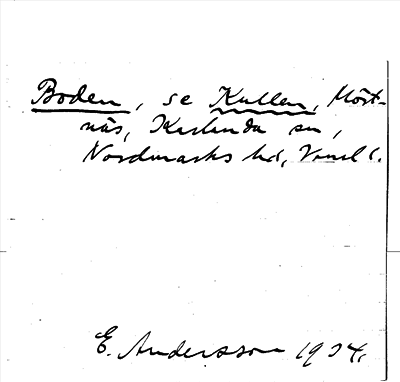 Boden, se Kullen, Höst-
näs, Karlanda sn,
Nordmarks hd, Vrml l.
E. Andersson 1924.